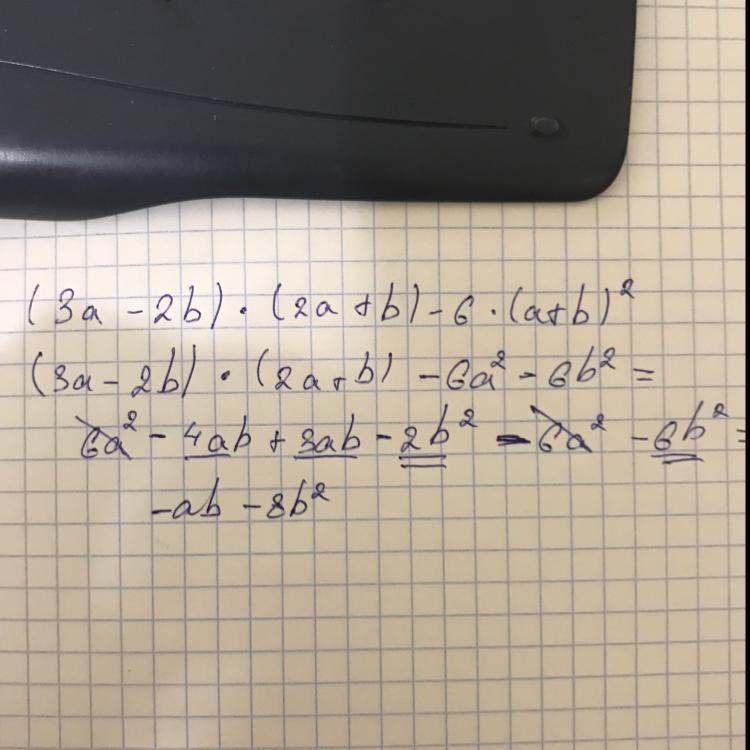 (3a - 2b) · (2a + b) - 6 · (a+b)²
(3a - 2b) · (2a + b) - 6a² - 6b² =
6a² - 4ab + 3ab - 2b² - 6a² - 6b² =
-ab - 8b²